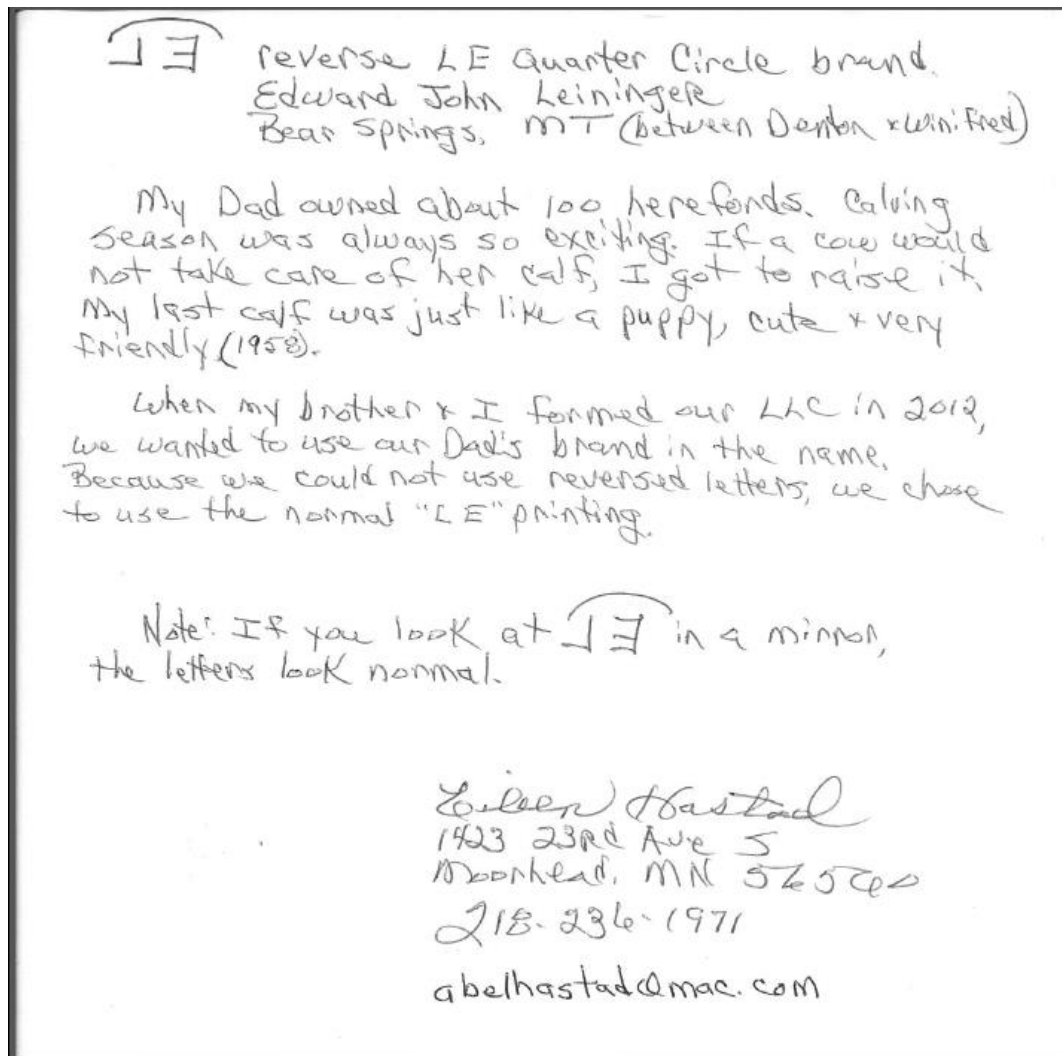 reverse LE Quarter Circle brand.
Edward John Leininger
Bear Springs, MT (between Denton & Winifred)
My Dad owned about 100 herefords. Calving
season was always so exciting. If a cow would
not take care of her calf, I got to raise it.
My last calf was just like a puppy, cute & very
friendly (1958).
When my brother & I formed our LLC in 2012,
we wanted to use our Dad's brand in the name.
Because we could not use reversed letters, we chose
to use the normal "LE" printing.
Note: If you look at in a mirror,
the letters look normal.
Eileen Hastad
1423 23rd Ave S
Moorhead, MN 56560
218-236-1971
abelhastad@mac.com